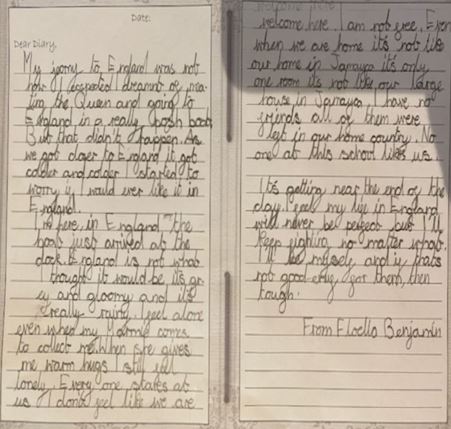 Date:
Dear Diary,
My jorny to England was not
how I expected dreamt of mea
ting the Queen and going to
England in a really posh boat
But that didn't happen. As
we got closer to England it got
colder and colder I started to
worry if I would ever like it in
England.
I'm here in England the
boat just arrived at the
dock England is not what
I thought it would be, it's gr
ey and gloomy and it's
really rainy. I feel alone
even when my Marmie comes
to collect me. When she gives
me warm hugs I still feel
lonely. Every one stares at
us I don't feel like we are
welcome here
welcome here. I am not free. Even
when we are home it's not like
our home in Jamayca it's only
one room its not like our large
house in Jamayca, I have no
friends all of them were
left in our home country. No
one at this school likes us.
It's getting near the end of the
day. I feel my life in England
will never be perfect but I'll
keep fighting no matter what.
I'll be myself, and if thats
not good enuf for them, then
tough.
From Floella Benjamin